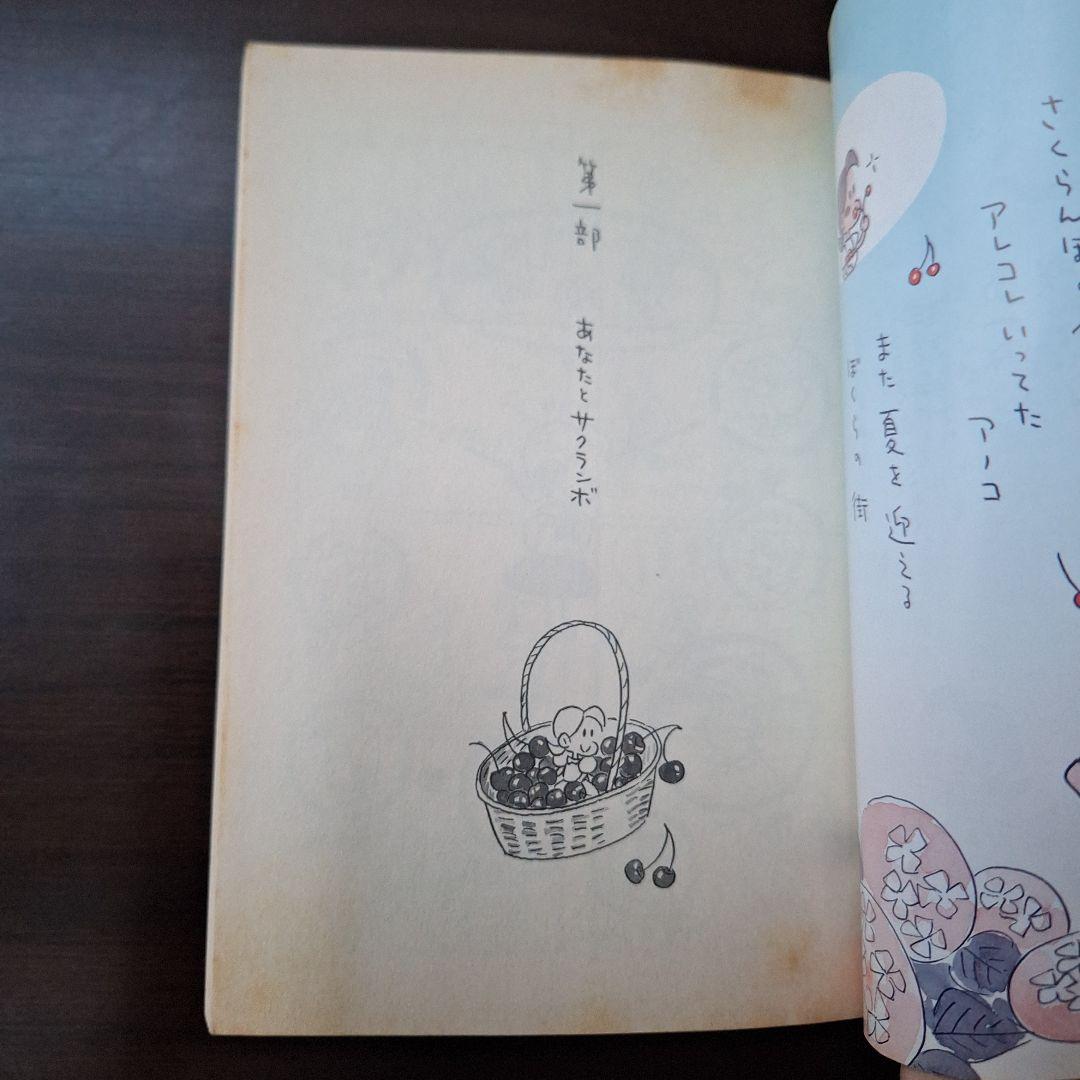 さくらんぼ
アレコレいってた
アノコ
また夏を迎える
ぼくらの街
第一部　あなたとサクランボ